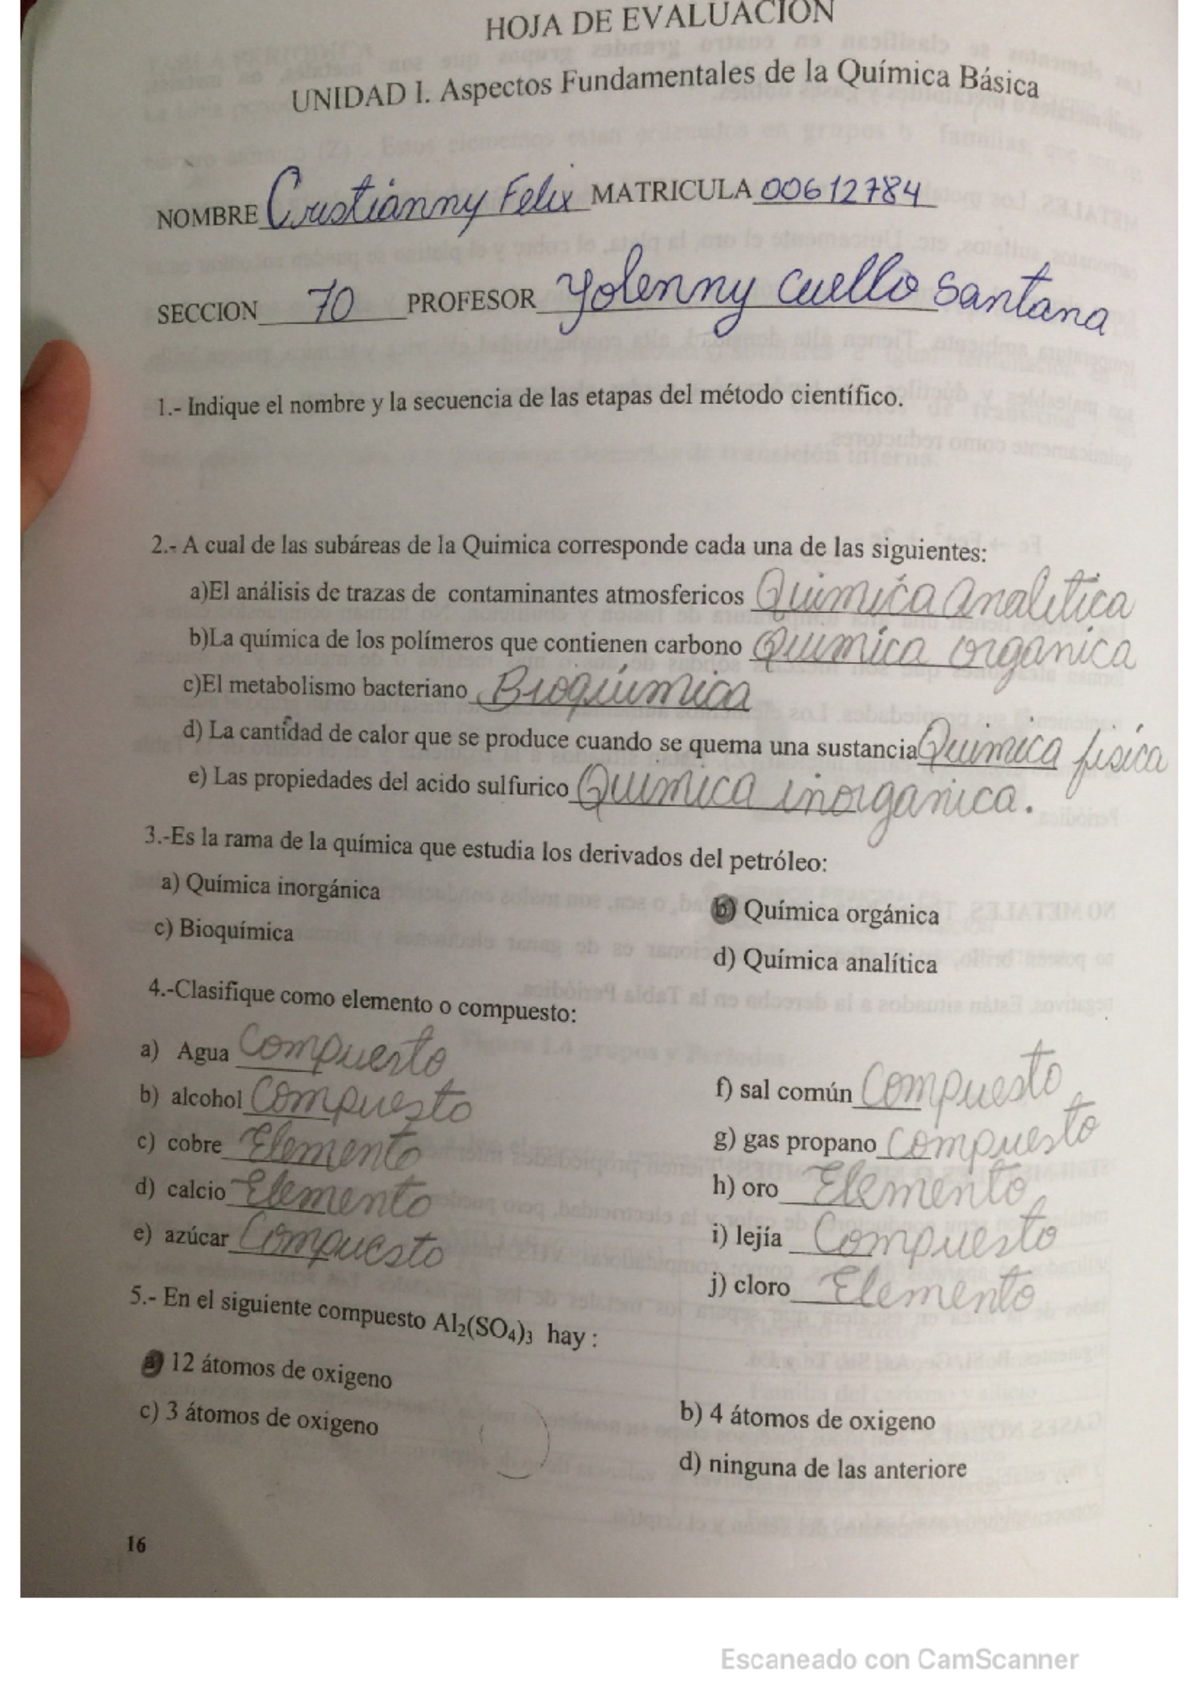 HOJA DE EVALUACION
UNIDAD I. Aspectos Fundamentales de la Química Básica
NOMBRE Cristianny Felix MATRICULA 00612784
SECCION 70 PROFESOR Yolenny Cuello Santana
1.- Indique el nombre y la secuencia de las etapas del método científico.
2.- A cual de las subáreas de la Quimica corresponde cada una de las siguientes:
a)El análisis de trazas de contaminantes atmosfericos Quimica Analitica
b)La química de los polímeros que contienen carbono Quimica organica
c)El metabolismo bacteriano Bioquimica
d) La cantidad de calor que se produce cuando se quema una sustancia Quimica fisica
e) Las propiedades del acido sulfurico Quimica inorganica.
3.-Es la rama de la química que estudia los derivados del petróleo:
a) Química inorgánica
b) Química orgánica
c) Bioquímica
d) Química analítica
4.-Clasifique como elemento o compuesto:
a) Agua Compuesto
b) alcohol Compuesto
c) cobre Elemento
d) calcio Elemento
e) azúcar Compuesto
f) sal común Compuesto
g) gas propano Compuesto
h) oro Elemento
i) lejía Compuesto
j) cloro Elemento
5.- En el siguiente compuesto Al₂(SO₄)₃ hay :
a) 12 átomos de oxigeno
b) 4 átomos de oxigeno
c) 3 átomos de oxigeno
d) ninguna de las anteriore
16
Escaneado con CamScanner